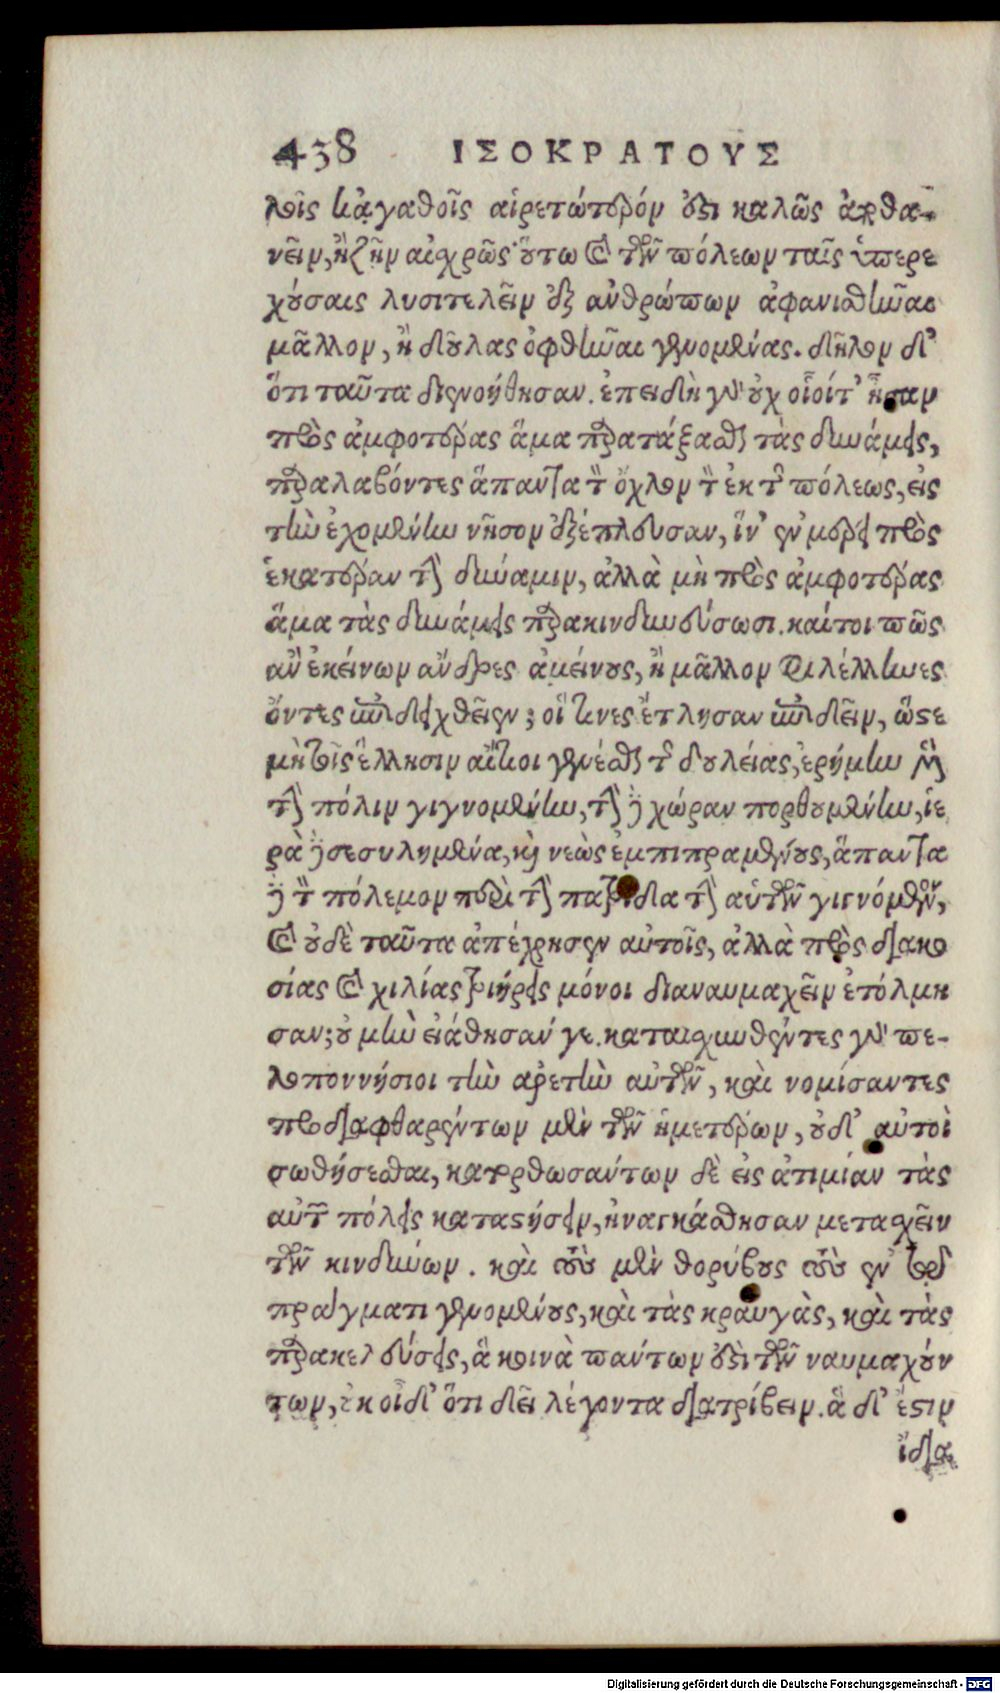 438 ΙΣΟΚΡΑΤΟΥΣ
λοῖς κἀγαθοῖς αἱρετώτερόν ἐστι καλῶς ἀποθα-
νεῖν, ἢ ζῆν αἰσχρῶς· οὕτω καὶ τῶν πόλεων ταῖς ὑπερε
χούσαις λυσιτελεῖν ἐξ ἀνθρώπων ἀφανισθῆναι
μᾶλλον, ἢ δούλας ὀφθῆναι γενομένας. δῆλον δ'
ὅτι ταῦτα διενοήθησαν. ἐπειδὴ γὰρ οὐχ οἷοί τ' ἦσαν
πρὸς ἀμφοτέρας ἅμα παρατάξασθαι τὰς δυνάμεις,
παραλαβόντες ἅπαντα τὸν ὄχλον τὸν ἐκ τῆς πόλεως, εἰς
τὴν ἐχομένην νῆσον ἐξέπλευσαν, ἵν' ἐν μέρει πρὸς
ἑκατέραν τὴν δύναμιν, ἀλλὰ μὴ πρὸς ἀμφοτέρας
ἅμα τὰς δυνάμεις παρακινδυνεύσωσι. καίτοι πῶς
ἂν ἐκείνων ἄνδρες ἀμείνους, ἢ μᾶλλον φιλέλληνες
ὄντες ἐπιδειχθεῖεν; οἵτινες ἔτλησαν ἐπιδεῖν, ὥστε
μὴ τοῖς ἕλλησιν αἴτιοι γενέσθαι τῆς δουλείας, ἐρήμην μὲν
τὴν πόλιν γιγνομένην, τὴν δὲ χώραν πορθουμένην, ἱε
ρὰ δὲ σεσυλημένα, καὶ νεὼς ἐμπιπραμένους, ἅπαντα
δὲ τὸν πόλεμον περὶ τὴν πατρίδα τὴν αὑτῶν γιγνόμενον,
καὶ οὐδὲ ταῦτα ἀπέχρησεν αὐτοῖς, ἀλλὰ πρὸς διακο
σίας καὶ χιλίας τριήρεις μόνοι διαναυμαχεῖν ἐτόλμη
σαν; οὐ μὴν εἰάθησάν γε. καταισχυνθέντες γὰρ πε-
λοποννήσιοι τὴν ἀρετὴν αὐτῶν, καὶ νομίσαντες
προδιαφθαρέντων μὲν τῶν ἡμετέρων, οὐδ' αὐτοὶ
σωθήσεσθαι, κατορθωσάντων δὲ εἰς ἀτιμίαν τὰς
αὑτῶν πόλεις καταστήσειν, ἠναγκάσθησαν μετασχεῖν
τῶν κινδύνων. καὶ τοὺς μὲν θορύβους τοὺς ἐν τῷ
πράγματι γενομένους, καὶ τὰς κραυγὰς, καὶ τὰς
παρακελεύσεις, ἃ κοινὰ πάντων ἐστὶ τῶν ναυμαχούν
των, οὐκ οἶδ' ὅτι δεῖ λέγοντα διατρίβειν. ἃ δ' ἔστιν
ἴδια
Digitalisierung gefördert durch die Deutsche Forschungsgemeinschaft - DFG